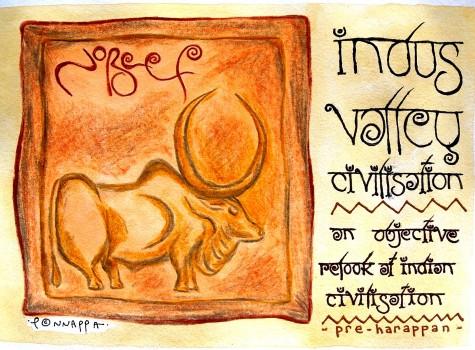 indus
valley
civilisation
an objective
relook at indian
civilisation
- pre-harappan -
P©NNAPPA